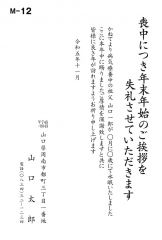 M-12
喪中につき年末年始のご挨拶を
失礼させていただきます
かねてより病気療養中の祖父 山口一郎が〇月に〇歳にて永眠いたしました
ここに本年中に賜りましたご厚情を深謝致しますと共に
皆様に良き年が訪れますようお祈り申し上げます
令和五年十一月
山口県周南市都町三丁目一番地
山口太郎